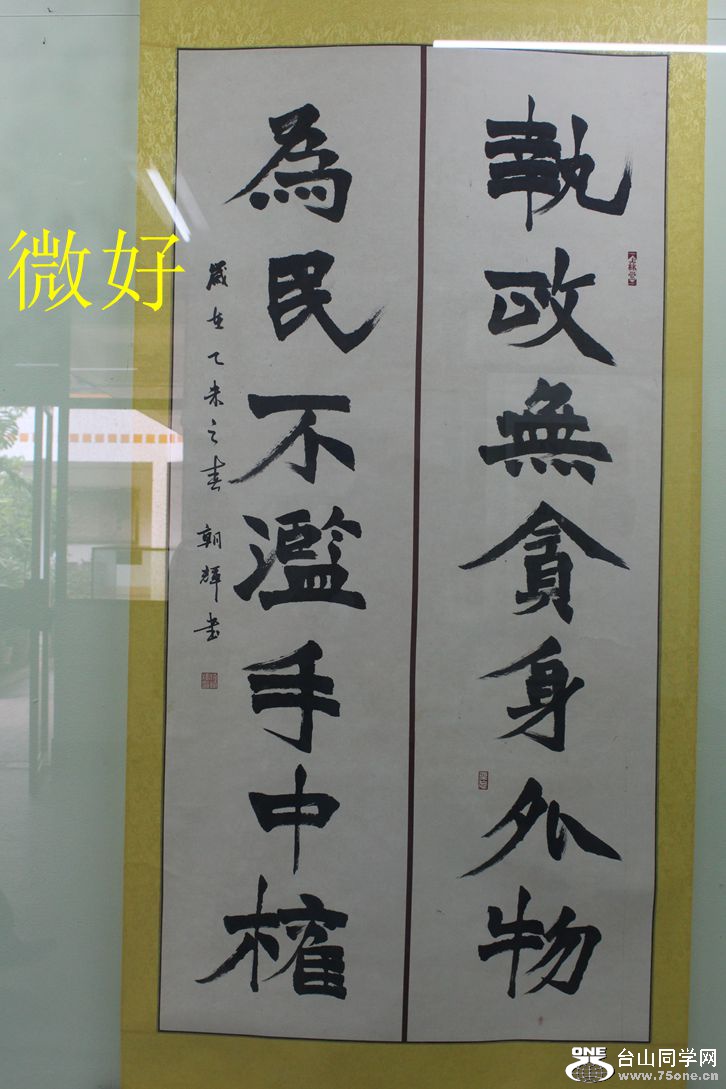 執政無貪身外物
為民不濫手中權
歲在乙未之春 朝輝书
微好
ONE
台山同学网
www.75one.cn